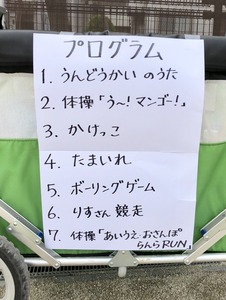 プログラム
1. うんどうかい のうた
2. 体操「う〜!マンゴー!」
3. かけっこ
4. たまいれ
5. ボーリングゲーム
6. りすさん 競走
7. 体操「あいうえおさんぽ
らんらRUN」